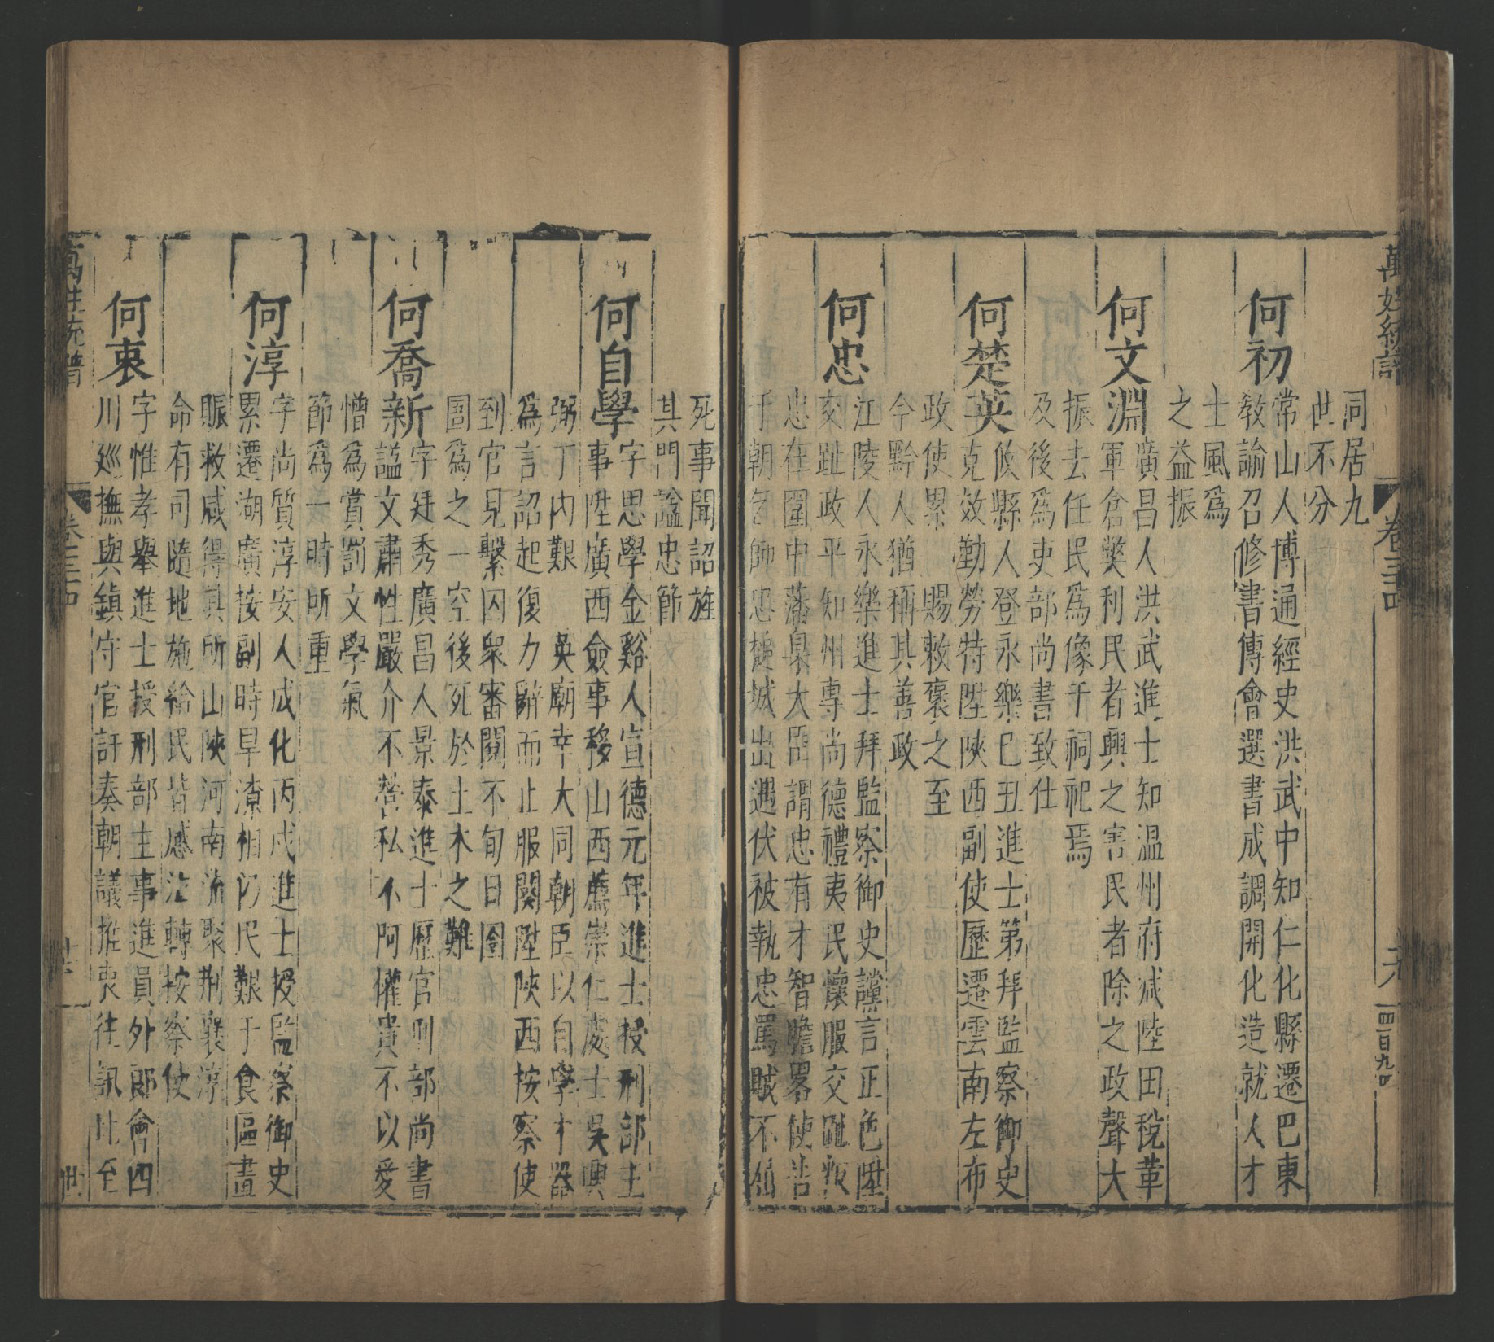 萬姓統譜
卷三十四
四百九四
同居九
世不分
何初
常山人博通經史洪武中知仁化縣遷巴東
教諭召修書傳會選書成調開化造就人才
士風爲
之益振
何文淵
廣昌人洪武進士知温州府减陸田稅革
軍倉獘利民者興之害民者除之政聲大
振去任民爲像于祠祀焉
及後爲吏部尚書致仕
何楚英
儀縣人登永樂己丑進士第拜監察御史
克效勤勞特陞陝西副使歷遷雲南左布
政使累賜敕褒之至
今黔人猶稱其善政
何忠
江陵人永樂進士拜監察御史讜言正色陞
交趾政平知州專尚德禮夷民懷服交趾叛
忠在圍中藩臬大臣謂忠有才智膽畧使告
于朝乞師忠挺城出遇伏被執忠罵賊不絶
死事聞詔旌
其門謚忠節
何自學
字思學金谿人宣德元年進士授刑部主
事陞廣西僉事移山西薦崇仁處士吳與
弼丁内艱英廟幸大同朝臣以自學才器
爲言詔起復力辭而止服闋陞陝西按察使
到官見繫囚衆審閱不旬日囹
圄爲之一空後死於土木之難
何喬新
字廷秀廣昌人景泰進士歷官刑部尚書
謚文肅性嚴介不營私不阿權貴不以愛
憎爲賞罰文學氣
節爲一時所重
何淳
字尚質淳安人成化丙戌進士授監察御史
累遷湖廣按副時旱潦相仍民艱于食區畫
賑救咸得其所山陝河南流聚荆襄淳
命有司隨地施給民皆感泣轉按察使
何衷
字惟孝舉進士授刑部主事進員外郎會四
川廵撫與鎮守官訐奏朝議推衷往訊比至
萬姓統譜
卷三十四